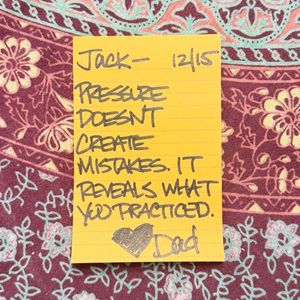 Jack— 12/15
PRESSURE
DOESN'T
CREATE
MISTAKES. IT
REVEALS WHAT
YOU PRACTICED.
Dad